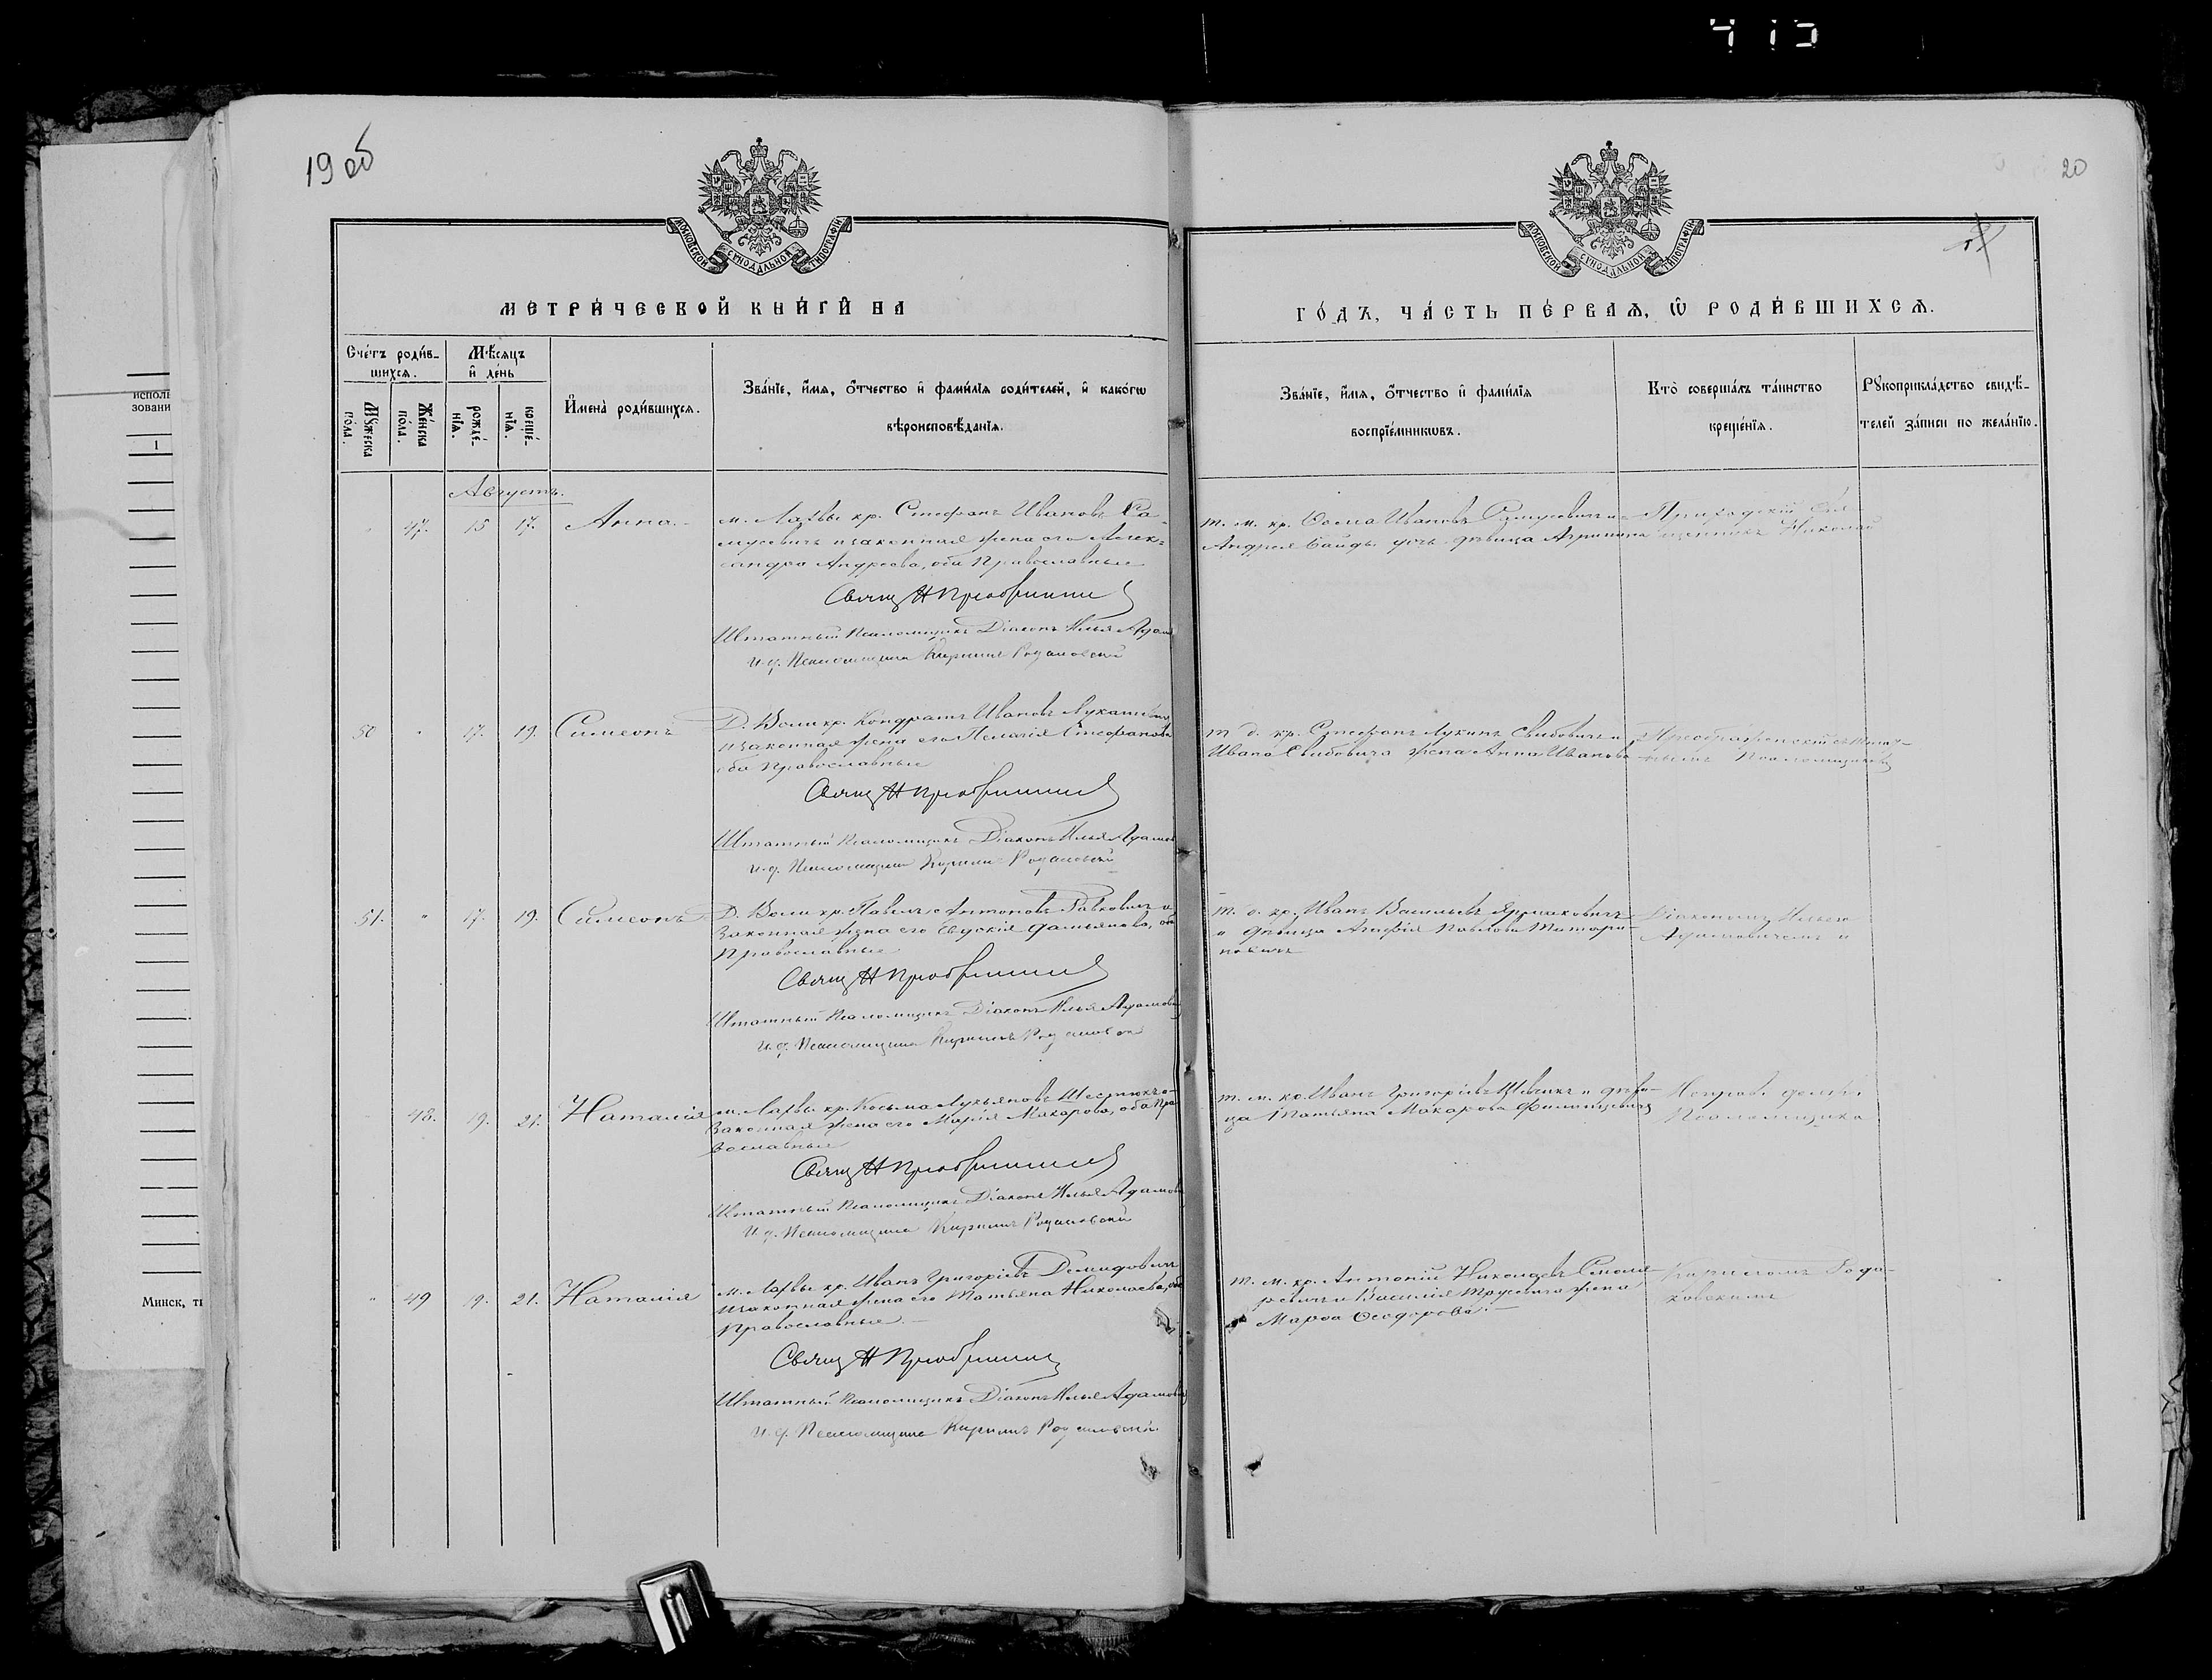 415
19 об
20
МОСКОВСКОЙ СѴНОДАЛЬНОЙ ТИПОГРАФІИ
МОСКОВСКОЙ СѴНОДАЛЬНОЙ ТИПОГРАФІИ
МЕТРИ́ЧЕСКОЙ КНИ́ГИ НА
ГО́ДЪ, ЧА́СТЬ ПЕ́РВАѦ, Ѡ҆ РОДИ́ВШИХСѦ.
Сче́тъ роди́в-
шихсѧ.
Мꙋ́жеска по́ла.
Же́нска по́ла.
Мѣ́сѧцъ
и҆ де́нь
рожде́-
нїѧ.
креще́-
нїѧ.
И҆мена̀ роди́вшихсѧ.
Зва́нїе, и҆́мѧ, ѻ҆́тчество и҆ фами́лїѧ родителей, и҆ како́гѡ
вѣроисповѣ́данїѧ.
Зва́нїе, и҆́мѧ, ѻ҆́тчество и҆ фами́лїѧ
воспрїе́мникѡвъ.
Кто̀ соверша́лъ та́инство
креще́нїѧ.
Рꙋкоприкла́дство свидѣ́-
телей за́писи по жела́нїю.
Августъ.
47. 15 17. Анна.
м. Лахвы кр. Стефанъ Ивановъ Са-
мусевичъ и законная жена его Алек-
сандра Андреева, оба Православные
Свящ Н Преображенскій
Штатный Псаломщикъ Діаконъ Илья Адамо
и. д. Псаломщика Кириллъ Родаковскій
т. м. кр. Ѳома Ивановъ Самусевичъ и
Андрея Байды дочь девица Агрипина
Приходскій Свя-
щенникъ Николай
50 " 17. 19. Симеонъ
Д. Воли кр. Кондратъ Ивановъ Лукашевичъ
и законная жена его Пелагія Стефанова
оба Православные
Свящ Н Преображенскій
Штатный Псаломщикъ Діаконъ Илья Адамов
и. д. Псаломщика Кириллъ Родаковскій
т. д. кр. Стефанъ Лукинъ Свибовичъ и
Ивана Свибовича жена Анна Иванова
Преображенскій съ Штат-
нымъ Псаломщикомъ
51. " 17. 19. Симеонъ
Д. Воли кр. Павелъ Антоновъ Равковичъ и
Законная жена его Евдокія Дамьянова, об
Православные
Свящ Н Преображенскій
Штатный Псаломщикъ Діаконъ Илья Адамов
и. д. Псаломщика Кириллъ Родаковскій
т. д. кр. Иванъ Васильевъ Ярмаковичъ
и девица Агафія Павлова
Діакономъ Ильею
Адамовичемъ и
48. 19. 21. Наталія
м. Лахвы кр. Косьма Лукьяновъ Шестюкъ и
Законная жена его Марія Макарова, оба Пра
вославные
Свящ Н Преображенскій
Штатный Псаломщикъ Діаконъ Илья Адамов
и. д. Псаломщика Кириллъ Родаковскій
т. м. кр. Иванъ Григорьевъ Шевчикъ и деви-
ца Татьяна Макарова Филипцевичъ
Исправ. долж.
Псаломщика
" 49 19. 21. Наталія
м. Лахвы кр. Иванъ Григорьевъ Демидовичъ
и законная жена его Татьяна Николаева, об
Православные. —
Свящ Н Преображенскій
Штатный Псаломщикъ Діаконъ Илья Адамов
и. д. Псаломщика Кириллъ Родаковскій
т. м. кр. Антоній Николаевъ
и Василія Трусевича жена
Марѳа Ѳеодорова. —
Кирилломъ Рода-
ковскимъ
исполь
зовани
1
Минск, ти